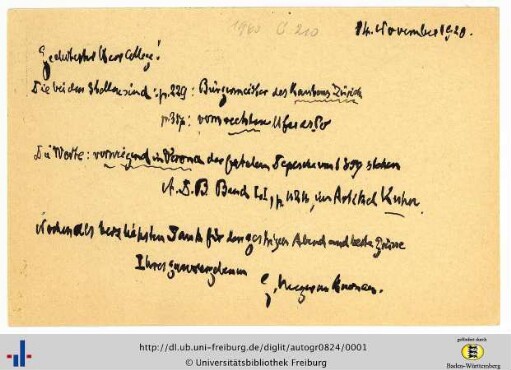 1960 G. 210
14. November 1920.
Geehrtester Herr College!
Die beiden Stellen sind: p. 229: Bürgermeister des Kantons Zürich
vom rechten Ufer
Die Worte: vorwiegend in Verona der fatalen Depesche von 1859 stehen
A. D. B. Band LI, p. im Artikel Kuhn.
Nochmals herzlichsten Dank für den gestrigen Abend und beste Grüsse
Ihres ganz ergebenen
G. Meyer von Knonau.
http://dl.ub.uni-freiburg.de/diglit/autogr0824/0001
© Universitätsbibliothek Freiburg
gefördert durch
Baden-Württemberg